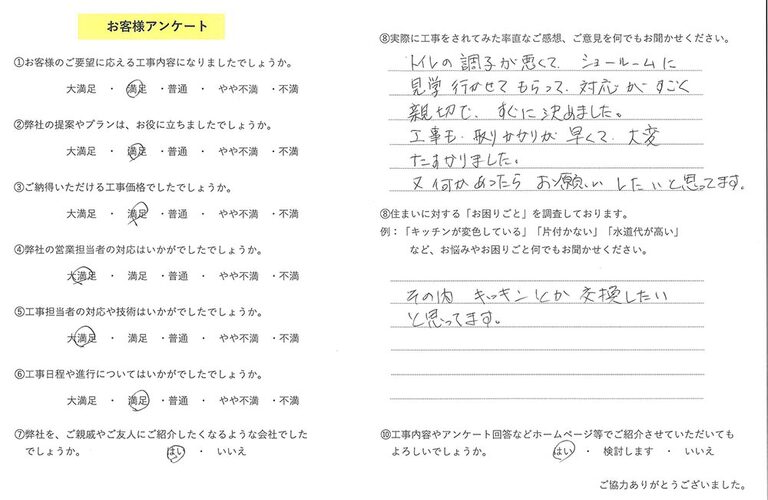 お客様アンケート
①お客様のご要望に応える工事内容になりましたでしょうか。
大満足 ・ 満足 ・普通 ・ やや不満 ・不満
②弊社の提案やプランは、お役に立ちましたでしょうか。
大満足 ・ 満足 ・普通 ・ やや不満 ・不満
③ご納得いただける工事価格でしたでしょうか。
大満足 ・ 満足 ・普通 ・ やや不満 ・不満
④弊社の営業担当者の対応はいかがでしたでしょうか。
大満足 ・ 満足 ・普通 ・ やや不満 ・不満
⑤工事担当者の対応や技術はいかがでしたでしょうか。
大満足 ・ 満足 ・普通 ・ やや不満 ・不満
⑥工事日程や進行についてはいかがでしたでしょうか。
大満足 ・ 満足 ・普通 ・ やや不満 ・不満
⑦弊社を、ご親戚やご友人にご紹介したくなるような会社でした
でしょうか。 はい ・ いいえ
⑧実際に工事をされてみた率直なご感想、ご意見を何でもお聞かせください。
トイレの調子が悪くて、ショールームに
見学行かせてもらって、対応がすごく
親切で、すぐに決めました。
工事も、取りかかりが早くて、大変
たすかりました。
又何かあったらお願いしたいと思ってます。
⑧住まいに対する「お困りごと」を調査しております。
例：「キッチンが変色している」「片付かない」「水道代が高い」
など、お悩みやお困りごと何でもお聞かせください。
その内 キッキンとか交換したい
と思ってます。
⑩工事内容やアンケート回答などホームページ等でご紹介させていただいても
よろしいでしょうか。 はい ・ 検討します ・ いいえ
ご協力ありがとうございました。